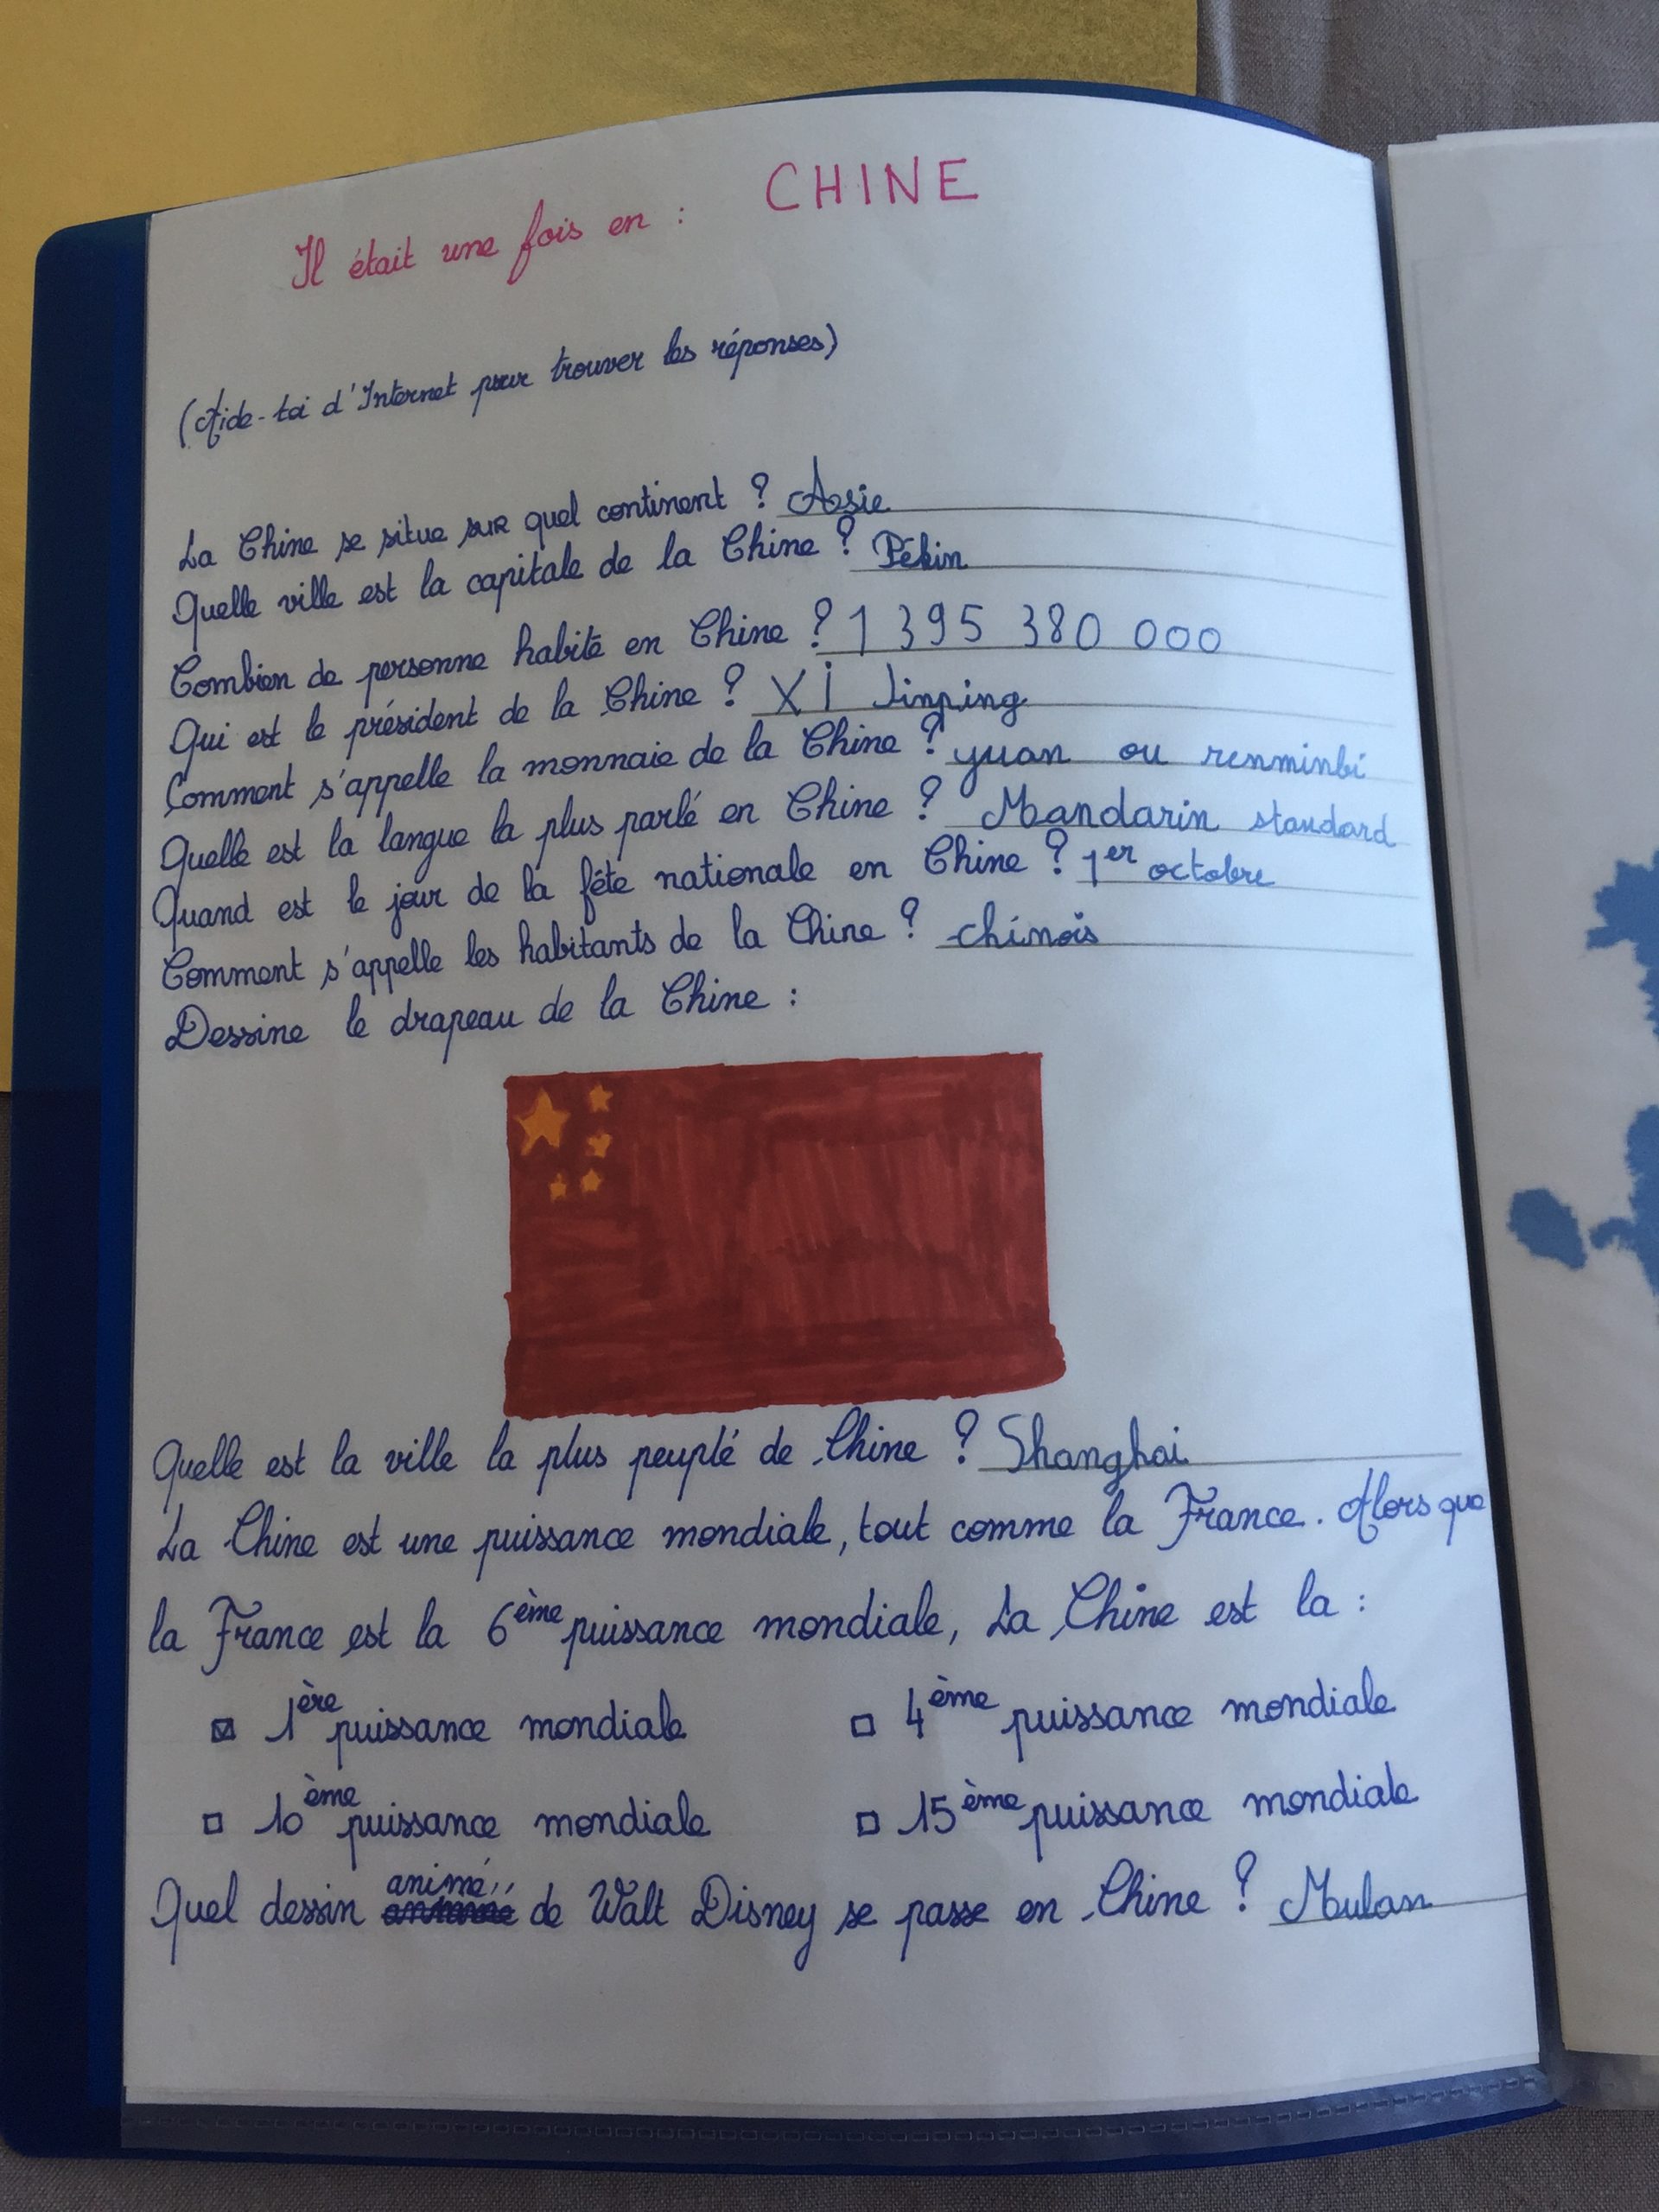 Il était une fois en : CHINE
(Aide-toi d'Internet pour trouver les réponses)
La Chine se situe sur quel continent ? Asie
Quelle ville est la capitale de la Chine ? Pékin
Combien de personne habite en Chine ? 1 395 380 000
Qui est le président de la Chine ? Xi Jinping
Comment s'appelle la monnaie de la Chine ? yuan ou renminbi
Quelle est la langue la plus parlé en Chine ? Mandarin standard
Quand est le jour de la fête nationale en Chine ? 1er octobre
Comment s'appelle les habitants de la Chine ? chinois
Dessine le drapeau de la Chine :
Quelle est la ville la plus peuplé de Chine ? Shanghai
La Chine est une puissance mondiale, tout comme la France. Alors que
la France est la 6ème puissance mondiale, La Chine est la :
☒ 1ère puissance mondiale ☐ 4ème puissance mondiale
☐ 10ème puissance mondiale ☐ 15ème puissance mondiale
Quel dessin animé de Walt Disney se passe en Chine ? Mulan